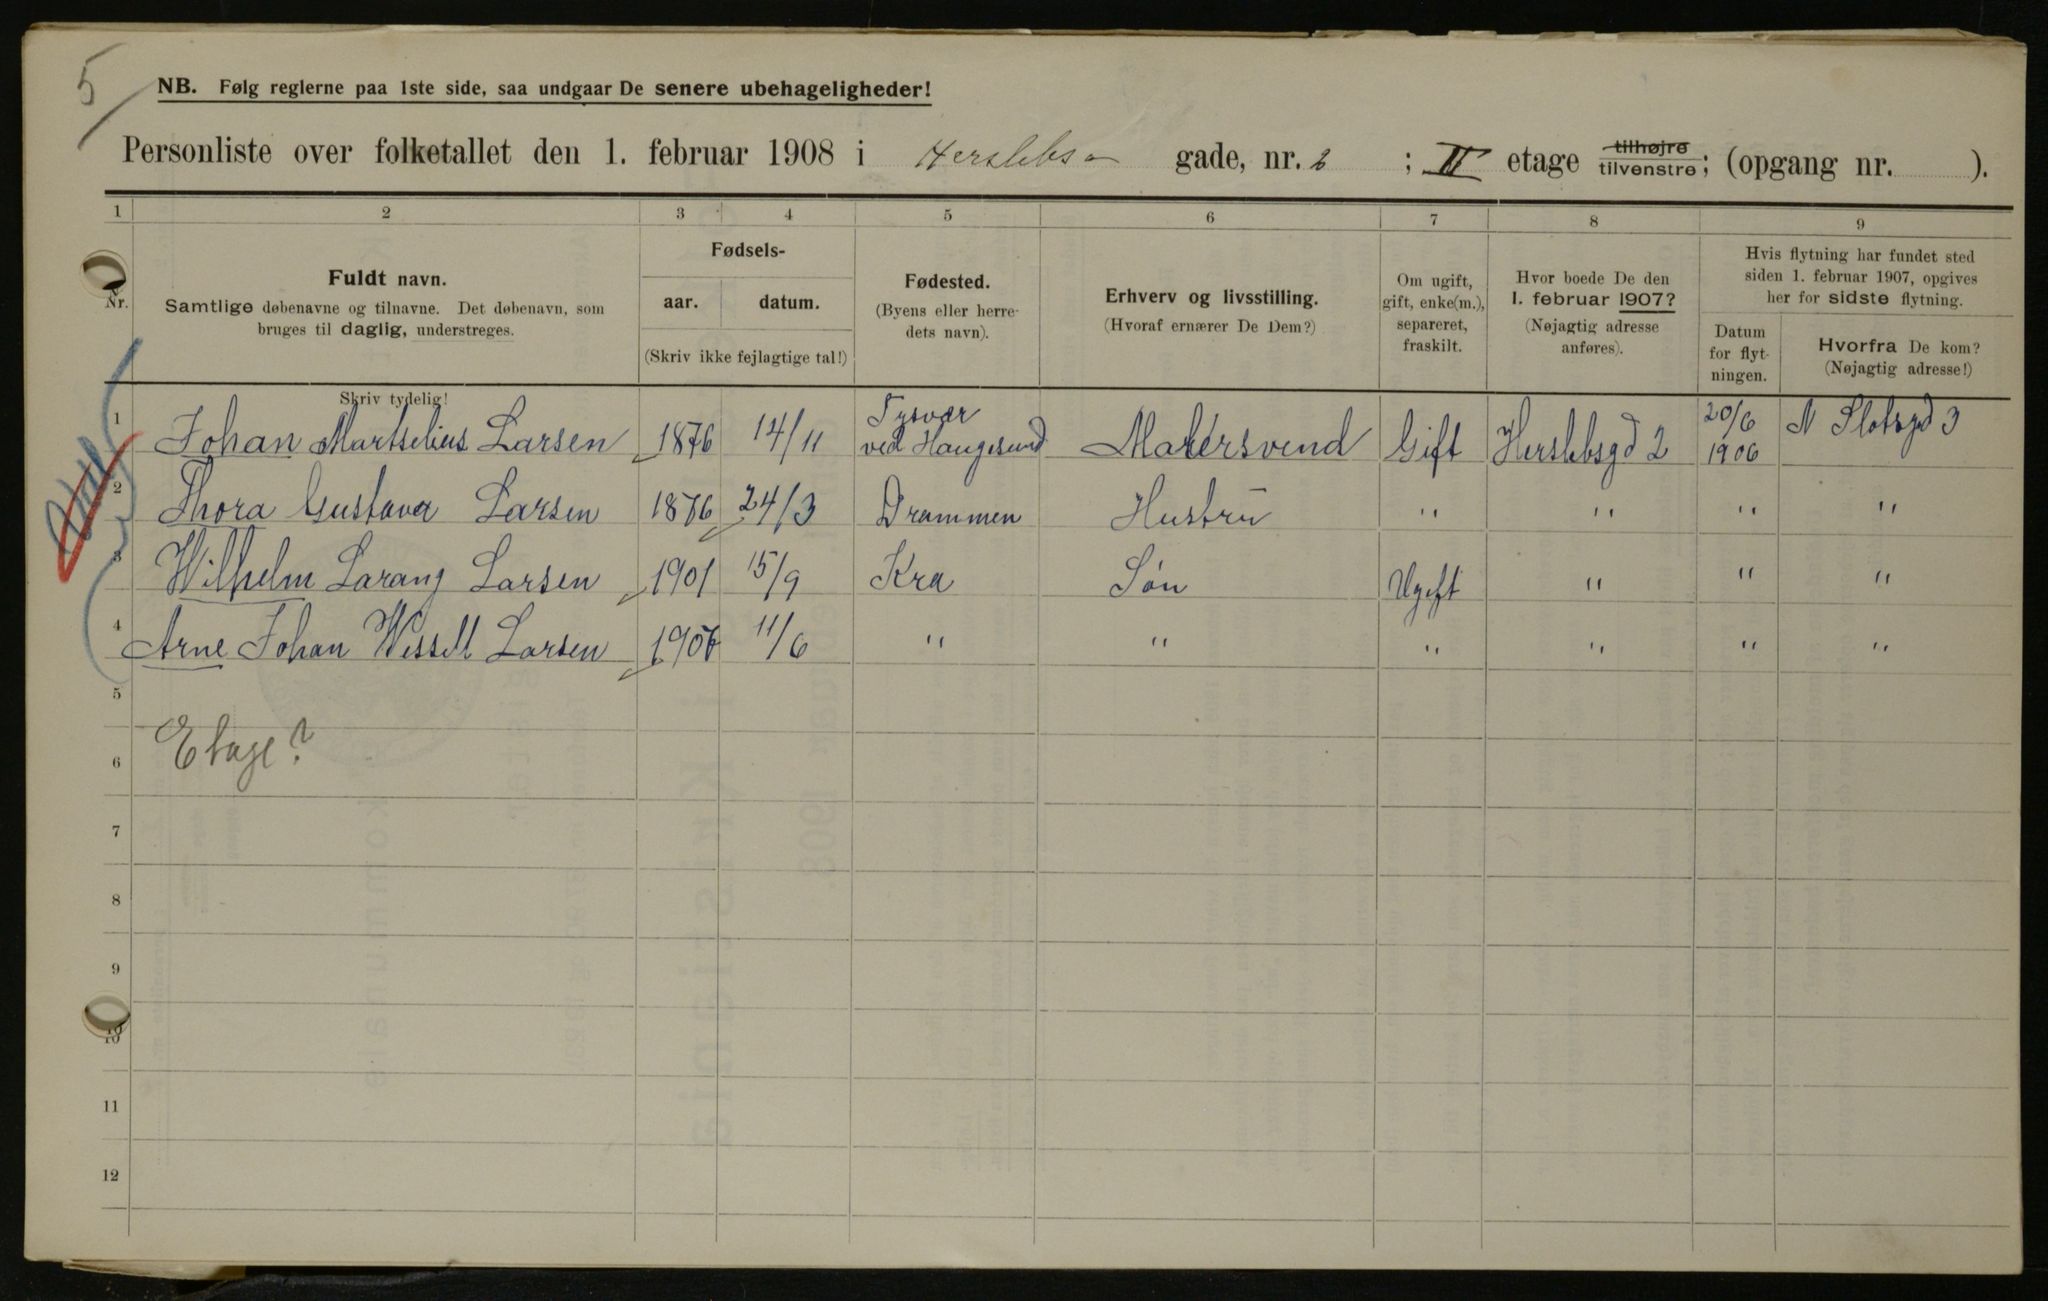 5
NB. Følg reglerne paa 1ste side, saa undgaar De senere ubehageligheder!
Personliste over folketallet den 1. februar 1908 i Herslebs gade, nr. 2 ; II etage tilhøjre tilvenstre; (opgang nr. ).
1 2 3 4 5 6 7 8 9
Nr.
Fuldt navn.
Samtlige døbenavne og tilnavne. Det døbenavn, som
bruges til daglig, understreges.
Fødsels-
aar. datum.
(Skriv ikke fejlagtige tal!)
Fødested.
(Byens eller herre-
dets navn).
Erhverv og livsstilling.
(Hvoraf ernærer De Dem?)
Om ugift,
gift, enke(m.),
separeret,
fraskilt.
Hvor boede De den
1. februar 1907?
(Nøjagtig adresse
anføres).
Hvis flytning har fundet sted
siden 1. februar 1907, opgives
her for sidste flytning.
Datum
for flyt-
ningen.
Hvorfra De kom?
(Nøjagtig adresse!)
Skriv tydelig!
1 Johan Martselius Larsen 1876 14/11 Tysvær ved Haugesund Malersvend Gift Herslebsgd 2 20/6 1906 N Slotsgd 3
2 Thora Gustava Larsen 1876 24/3 Drammen Hustru " " " "
3 Wilhelm Larang Larsen 1901 15/9 Kra Søn Ugift " " "
4 Arne Johan Wessell Larsen 1906 11/6 " " " " " "
5
Etage?
6
7
8
9
10
11
12